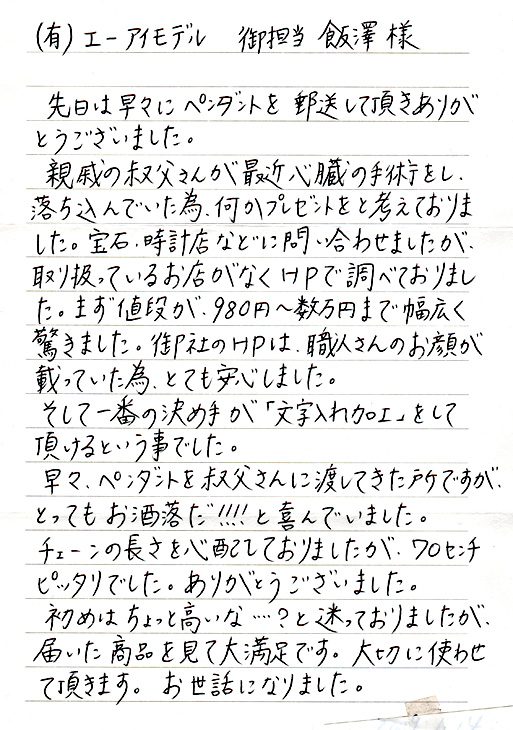 (有)エーアイモデル 御担当 飯澤様
先日は早々にペンダントを郵送して頂きありが
とうございました。
親戚の叔父さんが最近心臓の手術をし、
落ち込んでいた為、何かプレゼントをと考えておりま
した。宝石、時計店などに問い合わせましたが、
取り扱っているお店がなくHPで調べておりまし
た。まず値段が、980円〜数万円まで幅広く
驚きました。御社のHPは、職人さんのお顔が
載っていた為、とても安心しました。
そして一番の決め手が「文字入れ加工」をして
頂けるという事でした。
早々、ペンダントを叔父さんに渡してきた所ですが、
とってもお洒落だ!!!!と喜んでいました。
チェーンの長さを心配しておりましたが、70センチ
ピッタリでした。ありがとうございました。
初めはちょっと高いな…?と迷っておりましたが、
届いた商品を見て大満足です。大切に使わせ
て頂きます。お世話になりました。